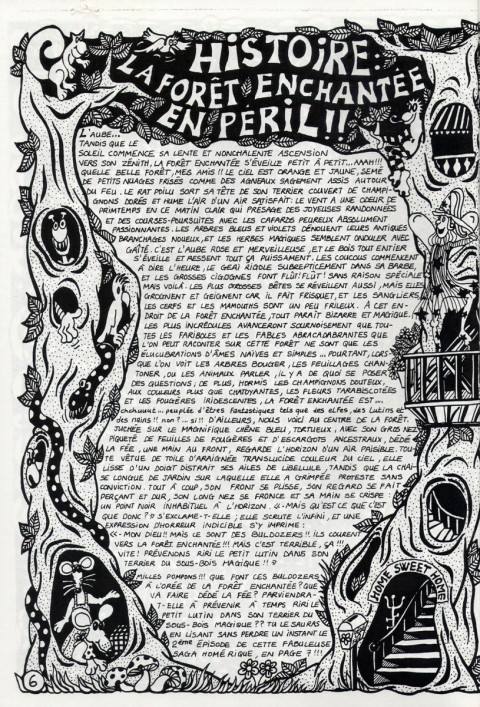 HISTOIRE:
LA FORÊT ENCHANTÉE
EN PÉRIL!!
L'AUBE...
TANDIS QUE LE
SOLEIL COMMENCE SA LENTE ET NONCHALENTE ASCENSION
VERS SON ZÉNITH, LA FORÊT ENCHANTÉE S'ÉVEILLE PETIT À PETIT... AAAH!!!
QUELLE BELLE FORÊT, MES AMIS!! LE CIEL EST ORANGE ET JAUNE, SEMÉ
DE PETITS NUAGES FRISÉS COMME DES AGNEAUX SAGEMENT ASSIS AUTOUR
DU FEU. LE RAT POILU SORT SA TÊTE DE SON TERRIER COUVERT DE CHAMPI-
GNONS DORÉS ET HUME L'AIR D'UN AIR SATISFAIT: LE VENT A UNE ODEUR DE
PRINTEMPS EN CE MATIN CLAIR QUI PRESAGE DES JOYEUSES RANDONNÉES
ET DES COURSES-POURSUITES AVEC LES CAFARDS PEUREUX ABSOLUMENT
PASSIONNANTES. LES ARBRES BLEUS ET VIOLETS DÉNOUENT LEURS ANTIQUES
BRANCHAGES NOUEUX, ET LES HERBES MAGIQUES SEMBLENT ONDULER AVEC
GAÎTÉ. C'EST L'AUBE ROSE ET MERVEILLEUSE, ET LE BOIS TOUT ENTIER
S'ÉVEILLE ET RESSENT TOUT ÇA PUISSAMENT. LES COUCOUS COMMENCENT
À DIRE L'HEURE, LE GEAI RIGOLE SUBREPTICEMENT DANS SA BARBE,
ET LES GROSSES CIGOGNES FONT FLÛT! FLÛT! SANS RAISON SPÉCIALE
MAIS VOILÀ. LES PLUS GROSSES BÊTES SE RÉVEILLENT AUSSI, MAIS ELLES
GROGNENT ET GEIGNENT CAR IL FAIT FRISQUET, ET LES SANGLIERS,
LES CERFS ET LES MAMOUTHS SONT UN PEU FRILEUX. À CET EN-
DROIT DE LA FORÊT ENCHANTÉE, TOUT PARAÎT BIZARRE ET MAGIQUE.
LES PLUS INCRÉDULES AVANCERONT SOURNOISEMENT QUE TOU-
TES LES FARIBOLES ET LES FABLES ABRACADABRANTES QUE
L'ON PEUT RACONTER SUR CETTE FORÊT NE SONT QUE LES
ÉLUCUBRATIONS D'ÂMES NAÏVES ET SIMPLES... POURTANT, LORS-
QUE L'ON VOIT LES ARBRES BOUGER, LES FEUILLAGES CHAN-
TONER, OU LES ANIMAUX PARLER, IL Y A DE QUOI SE POSER
DES QUESTIONS; DE PLUS, HORMIS LES CHAMPIGNONS DOUTEUX,
AUX COULEURS PLUS QUE CHATOYANTES, LES FLEURS TARABISCOTÉES
ET LES FOUGÈRES IRIDESCENTES, LA FORÊT ENCHANTÉE EST...
chchuuut... peuplée d'êtres fantastiques tels que des elfes, des lutins et
des nains!! non? ... si!! D'AILLEURS, NOUS VOICI AU CENTRE DE LA FORÊT.
JUCHÉE SUR LE MAGNIFIQUE CHÊNE BLEU, TORTUEUX, AVEC SON GROS NEZ
PIQUETÉ DE FEUILLES DE FOUGÈRES ET D'ESCARGOTS ANCESTRAUX, DÉDÉ
LA FÉE, UNE MAIN AU FRONT, REGARDE L'HORIZON D'UN AIR PAISIBLE. TOU-
TE VÊTUE DE TOILE D'ARAIGNÉE TRANSLUCIDE COULEUR DU CIEL, ELLE
LISSE D'UN DOIGT DISTRAIT SES AILES DE LIBELLULE, TANDIS QUE LA CHAI-
SE LONGUE DE JARDIN SUR LAQUELLE ELLE A GRIMPÉE PROTESTE SANS
CONVICTION. TOUT À COUP, SON FRONT SE PLISSE, SON REGARD SE FAIT
PERÇANT ET DUR, SON LONG NEZ SE FRONCE ET SA MAIN SE CRISPE:
UN POINT NOIR INHABITUEL À L'HORIZON. «-MAIS QU'EST CE QUE C'EST
QUE DONC?» S'EXCLAME-T-ELLE; ELLE SCRUTE L'INFINI, ET UNE
EXPRESSION D'HORREUR INDICIBLE S'Y IMPRIME:
«-MON DIEU!! MAIS CE SONT DES BULDOZERS!! ILS COURENT
VERS LA FORÊT ENCHANTÉE!!! MAIS C'EST TERRIBLE, ÇA!!!
VITE! PRÉVENONS RIRI LE PETIT LUTIN DANS SON
TERRIER DU SOUS-BOIS MAGIQUE!! »
MILLES POMPONS!!! QUE FONT CES BULDOZERS
À L'ORÉE DE LA FORÊT ENCHANTÉE? QUE
VA FAIRE DÉDÉ LA FÉE? PARVIENDRA-
T-ELLE À PRÉVENIR À TEMPS RIRI LE
PETIT LUTIN DANS SON TERRIER DU
SOUS-BOIS MAGIQUE?? TU LE SAURAS
EN LISANT SANS PERDRE UN INSTANT LE
2ème ÉPISODE DE CETTE FABULEUSE
SAGA HOMÉRIQUE, EN PAGE 7!!!
HOME SWEET HOME
6